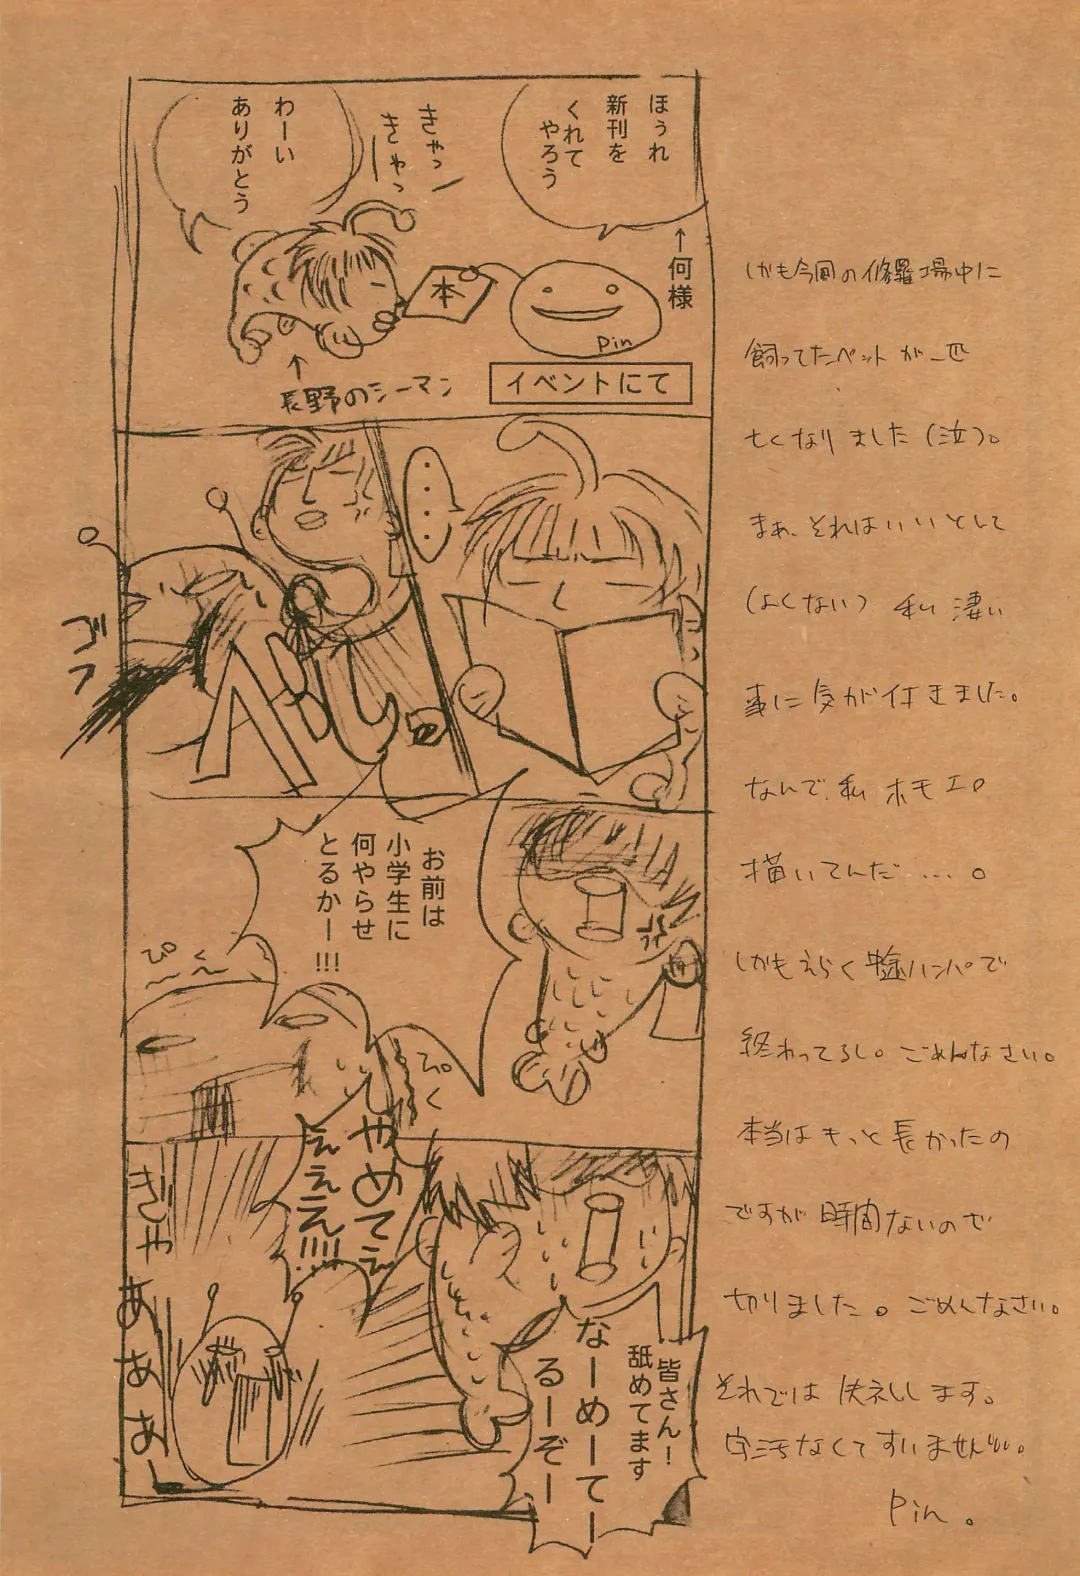 ほぅれ
新刊を
くれて
やろう
↑何様
きゃっ
きゃっ
わーい
ありがとう
本
Pin
↑
長野のシーマン
イベントにて
‥‥
ゴフ
べし
お前は
小学生に
何やらせ
とるかー!!!
ぴく
ぴく
やめてぇ
ぇぇえ!!!!
皆さん!
舐めてます
なーめーてー
るーぞー
ぎゃ
あああー
しかも今回の修羅場中に
飼ってたペットが一匹
亡くなりました(泣)。
まあ、それはいいとして
(よくない) 私 凄い
事に気が付きました。
なんで、私 ホモエロ
描いてんだ…。
しかもえらく中途ハンパで
終わってるし。ごめんなさい。
本当はもっと長かったの
ですが時間ないので
切りました。ごめんなさい。
それでは失礼します。
字汚なくてすいません。
Pin。